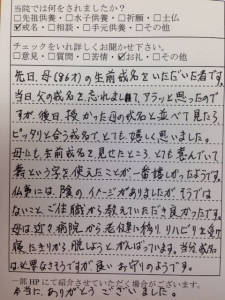 当院では何をされましたか?
□先祖供養・□水子供養・□祈願・□土仏
☑戒名・□相談・□手元供養・□その他
チェックをいれ詳しくお聞かせ下さい。
□意見・□質問・□苦情・☑お礼・□その他
先日、母(86才)の生前戒名をいただいた者です。
当日、父の戒名を忘れましてアラッと思ったので
すが、後日、授かった母の戒名と並べて見たら
ピッタリと合う戒名で、とても嬉しく思いました。
母にも、生前戒名を見せたところ、とても喜んでいて
義という字を使えたことが一番嬉しかったようです。
仏事には、陰のイメージがありましたが、そうでは
ないとご住職から教えていただき良かったです。
母は近々病院から老健に移り、リハビリを受け
寝たきりから脱しようとがんばっています。当分戒名
は必要なさそうですが良いお守りのようです。
一部HPにて紹介させていただく場合がございます。
本当に、ありがとうございました。